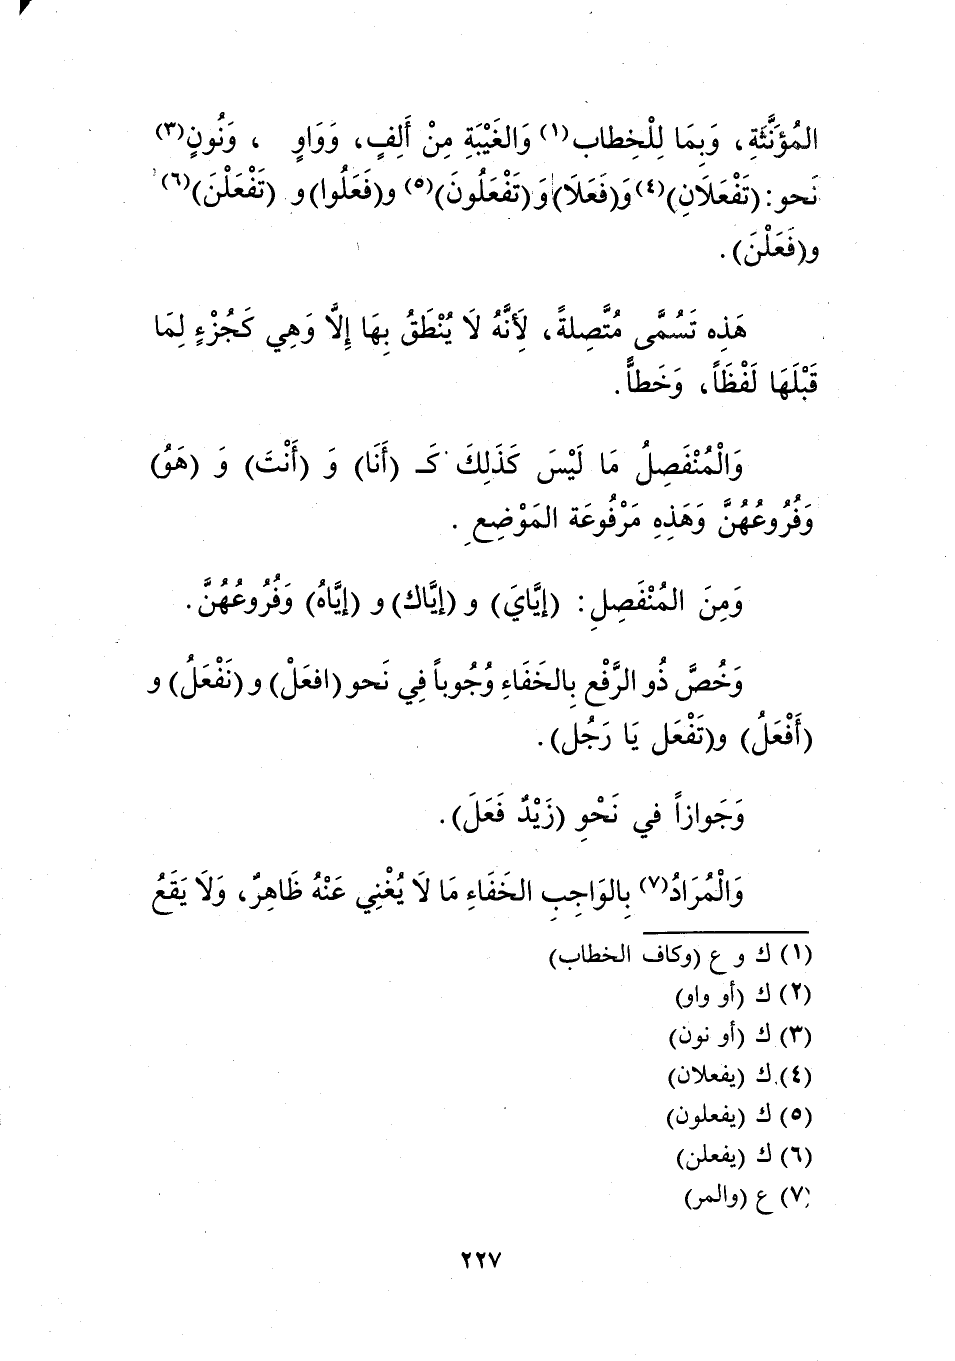 المُؤَنَّثَةِ، وَبِمَا لِلْخِطاب(١) وَالغَيْبَةِ مِنْ أَلِفٍ، وَوَاوٍ ، وَنُونٍ(٣)
نَحو: (تَفْعَلَانِ)(٤) وَ(فَعَلَا) وَ(تَفْعَلُونَ)(٥) و(فَعَلُوا) و (تَفْعَلْنَ)(٦)
و(فَعَلْنَ).
هَذِه تَسُمَّى مُتَّصِلةً، لِأَنَّهُ لَا يُنْطَقُ بِهَا إِلَّا وَهِي كَجُزْءٍ لِمَا
قَبْلَهَا لَفْظَاً، وَخَطاًّ.
وَالْمُنْفَصِلُ مَا لَيْسَ كَذَلِكَ كَـ (أَنَا) وَ (أَنْتَ) وَ (هَوُ)
وَفُرُوعُهُنَّ وَهَذِهِ مَرْفُوعَة المَوْضِعِ .
وَمِنَ المُنْفَصِلِ: (إيَّايَ) و (إيَّاك) و (إيَّاهُ) وَفُرُوعُهُنَّ.
وَخُصَّ ذُو الرَّفْعِ بِالخَفَاءِ وُجُوباً فِي نَحو (افعَلْ) و (نَفْعَلُ) و
(أَفْعَلُ) و(تَفْعَل يَا رَجُل).
وَجَوازاً في نَحْوِ (زَيْدٌ فَعَلَ).
وَالْمُرَادُ(٧) بِالوَاجِبِ الخَفَاءِ مَا لَا يُغْنِي عَنْهُ ظَاهِرٌ، وَلَا يَقَعُ
(١) ك و ع (وكاف الخطاب)
(٢) ك (أو واو)
(٣) ك (أو نون)
(٤) ك (يفعلان)
(٥) ك (يفعلون)
(٦) ك (يفعلن)
(٧) ع (والمر)
٢٢٧